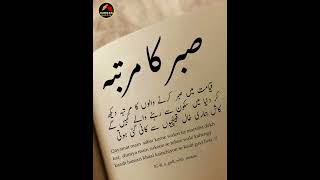 صبر کا مرتبہ
قیامت میں صبر کرنے والوں کا مرتبہ دیکھ
کر دنیا میں سکون سے رہنے والے کہیں گے
کاش ہماری کھال قینچیوں سے کاٹی گئی ہوتی
Qayamat main sabar karne walon ka martaba dekh
kar, duniya main sukoon se rehne wale kahengy
kaash hamari khaal kainchiyon se kaati gayi hoti